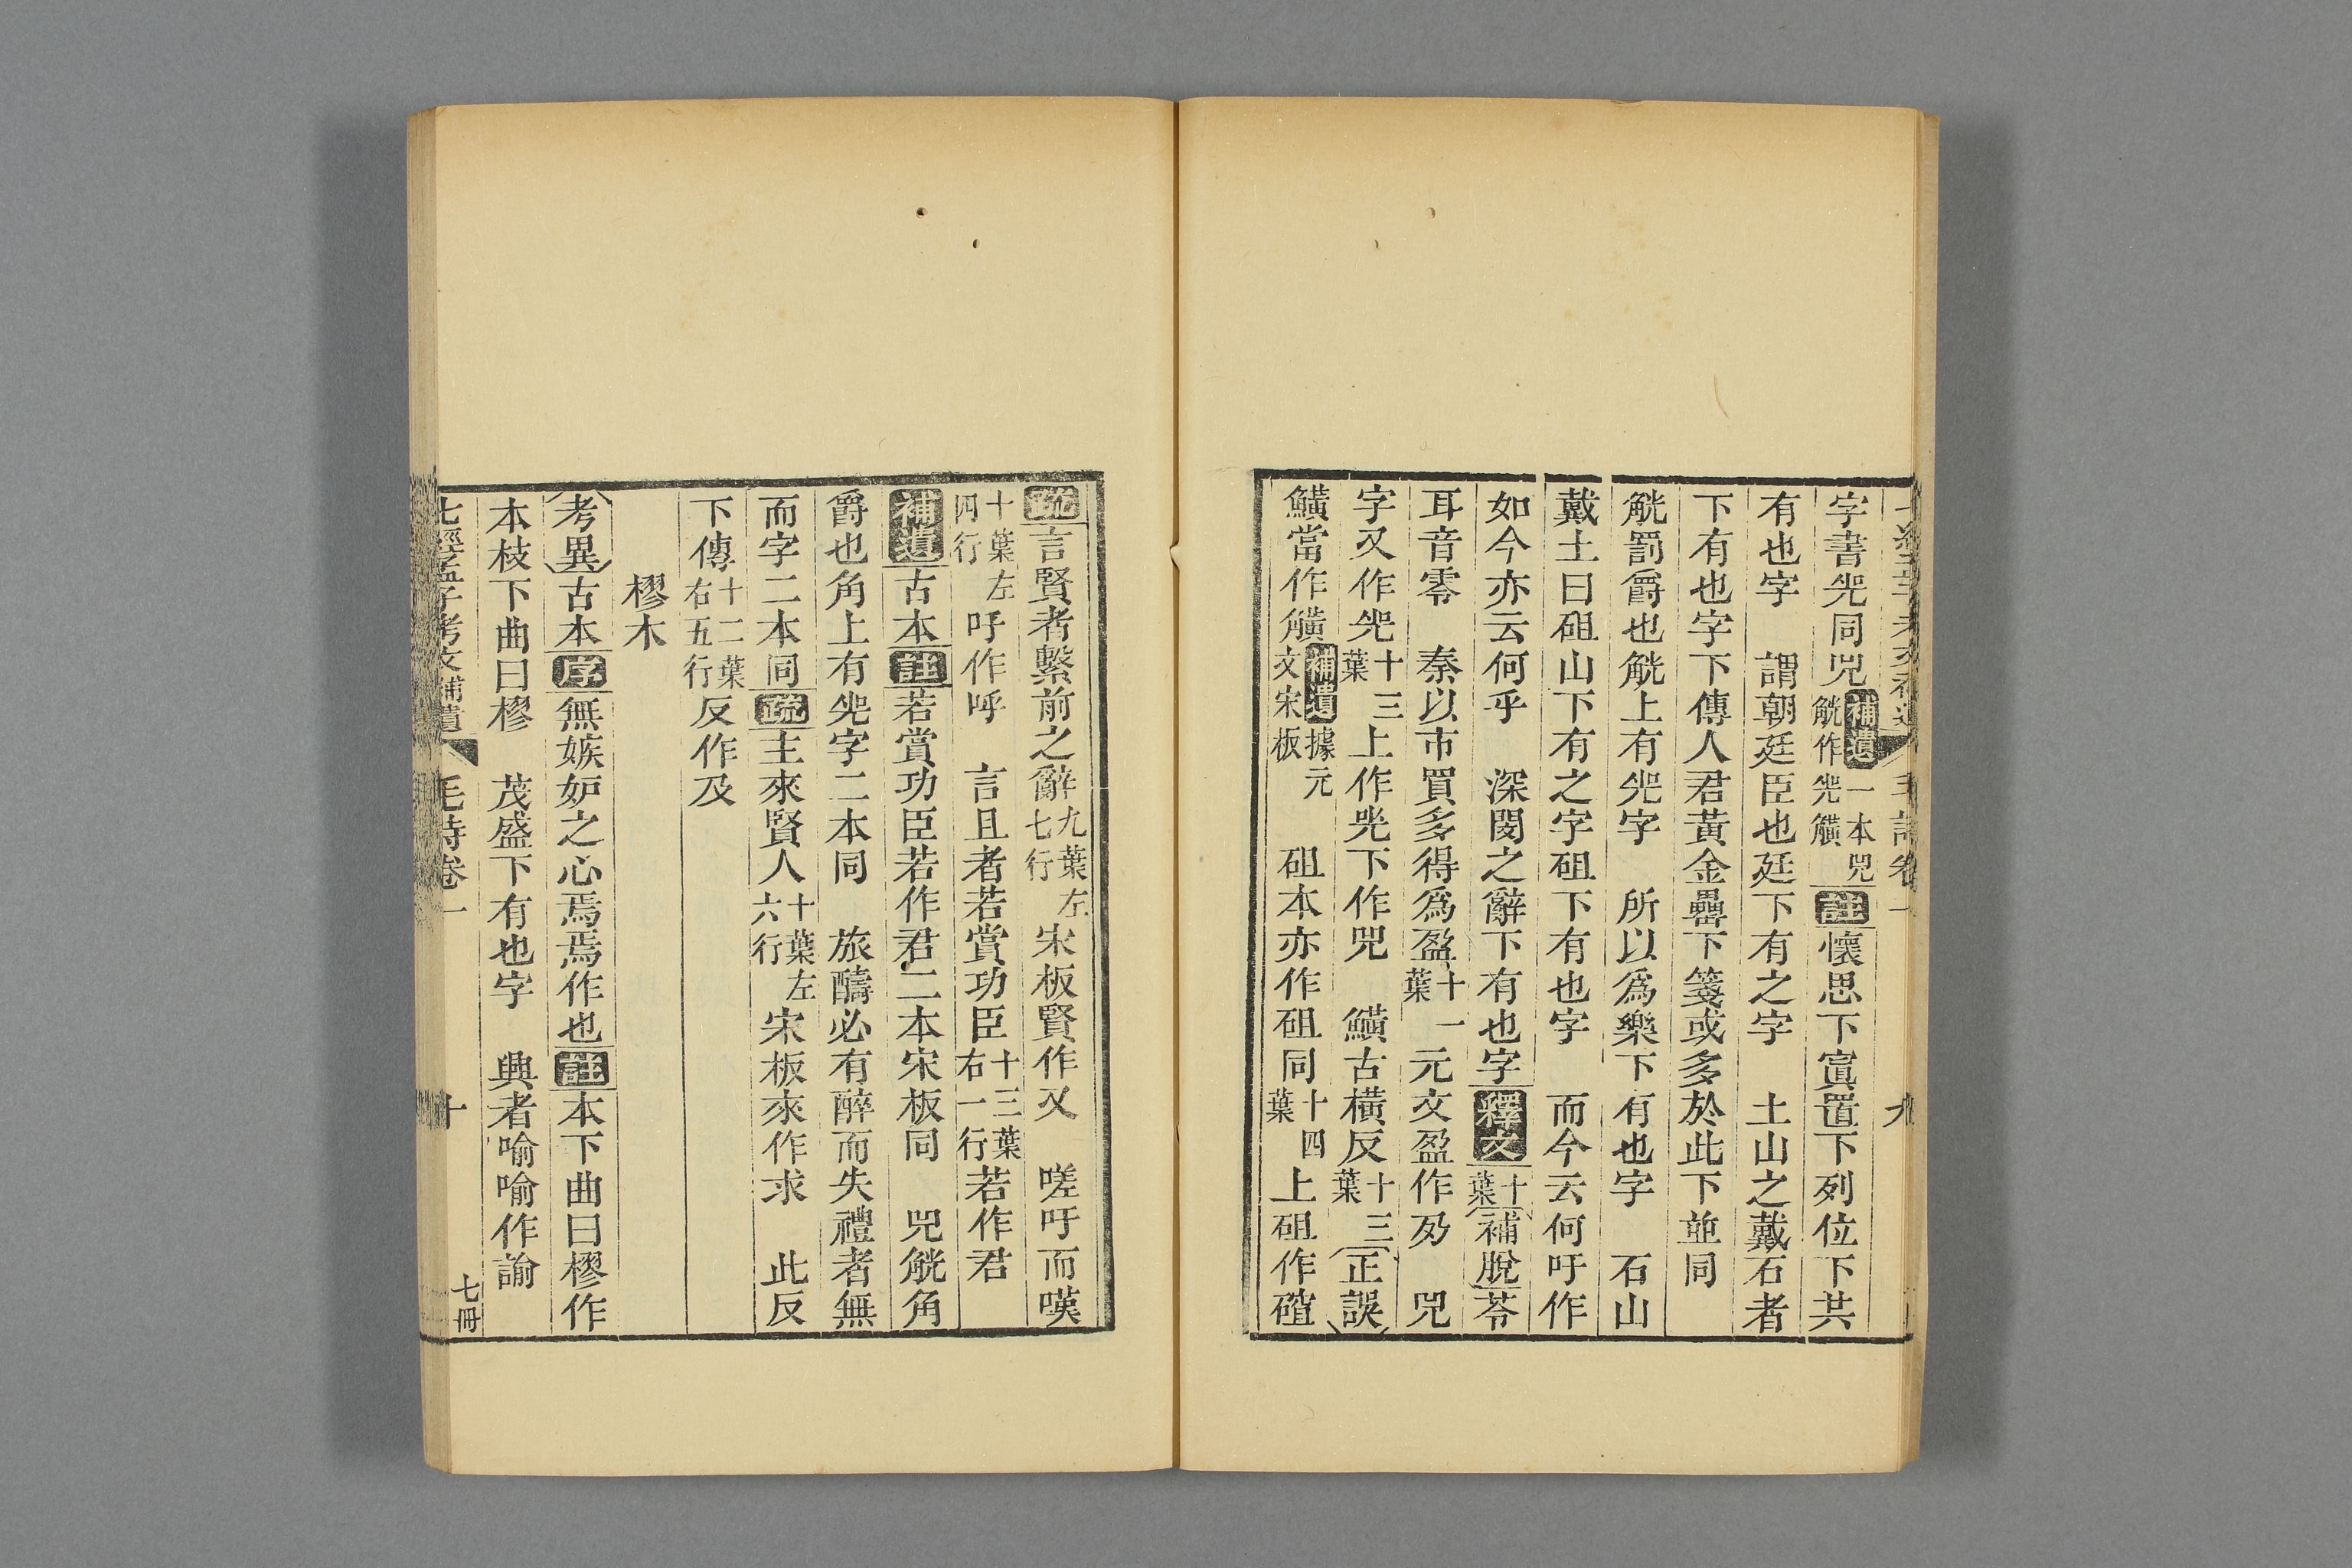 字書兕同兕補遺一本兕觥作兕觵註懷思下寘置下列位下共
有也字　謂朝廷臣也廷下有之字　土山之戴石者
下有也字下傳人君黃金罍下箋或多於此下並同
觥罰爵也觥上有兕字　所以爲樂下有也字　石山
戴土曰砠山下有之字砠下有也字　而今云何吁作
如今亦云何乎　深閔之辭下有也字釋文十葉補脫苓
耳音零　秦以市買多得爲盈十一葉元文盈作夃　兕
字又作兕十三葉上作兕下作兕　鱑古橫反十三葉正誤
鱑當作觵補遺據元文宋板　砠本亦作砠同十四葉上砠作碹
疏言賢者繫前之辭九葉左七行宋板賢作又　嗟吁而嘆
十葉左四行吁作呼　言且者若賞功臣十三葉右一行若作君
補遺古本註若賞功臣若作君二本宋板同　兕觥角
爵也角上有兕字二本同　旅醻必有醉而失禮者無
而字二本同疏主來賢人十葉左六行宋板來作求　此反
下傳十二葉右五行反作及
樛木
考異古本序無嫉妒之心焉焉作也註本下曲曰樛作
本枝下曲曰樛　茂盛下有也字　興者喻喻作諭
七經孟子考文補遺　毛詩卷一　十　七冊